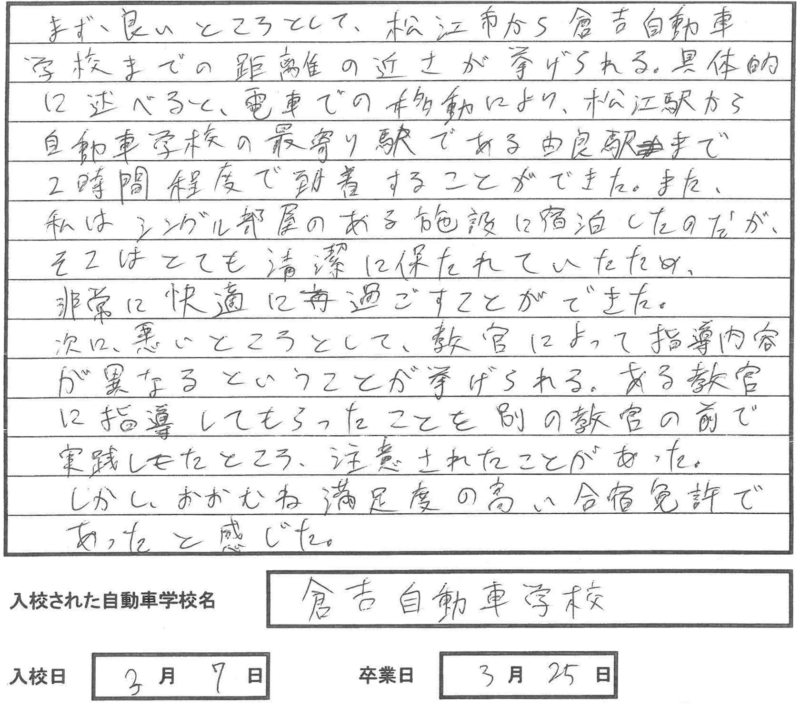 まず、良いところとして、松江市から倉吉自動車
学校までの距離の近さが挙げられる。具体的
に述べると、電車での移動により、松江駅から
自動車学校の最寄り駅である由良駅まで
2時間程度で到着することができた。また、
私はシングル部屋のある施設に宿泊したのだが、
そこはとても清潔に保たれていたため、
非常に快適に過ごすことができた。
次に、悪いところとして、教官によって指導内容
が異なるということが挙げられる。ある教官
に指導してもらったことを別の教官の前で
実践したところ、注意されたことがあった。
しかし、おおむね満足度の高い合宿免許で
あったと感じた。
入校された自動車学校名 倉吉自動車学校
入校日 3月7日 卒業日 3月25日